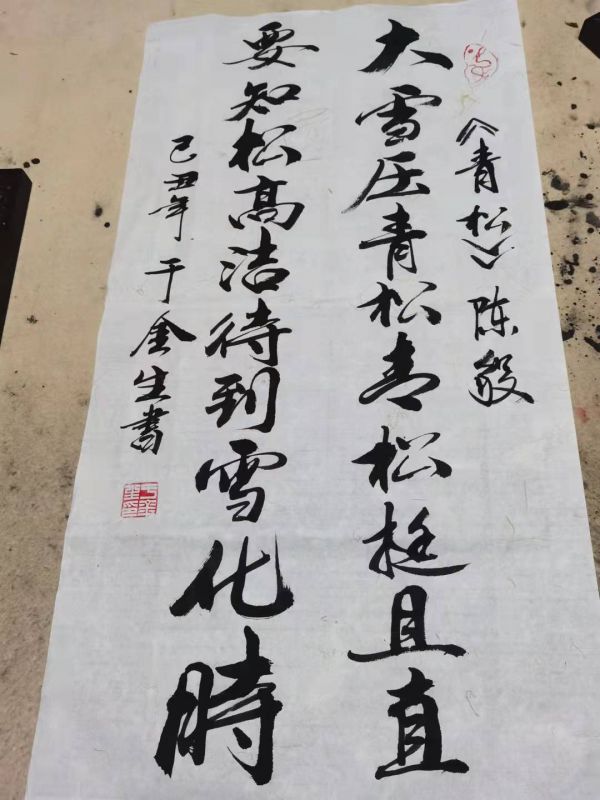 《青松》陈毅
大雪压青松青松挺且直
要知松高洁待到雪化時
己丑年 于金生書